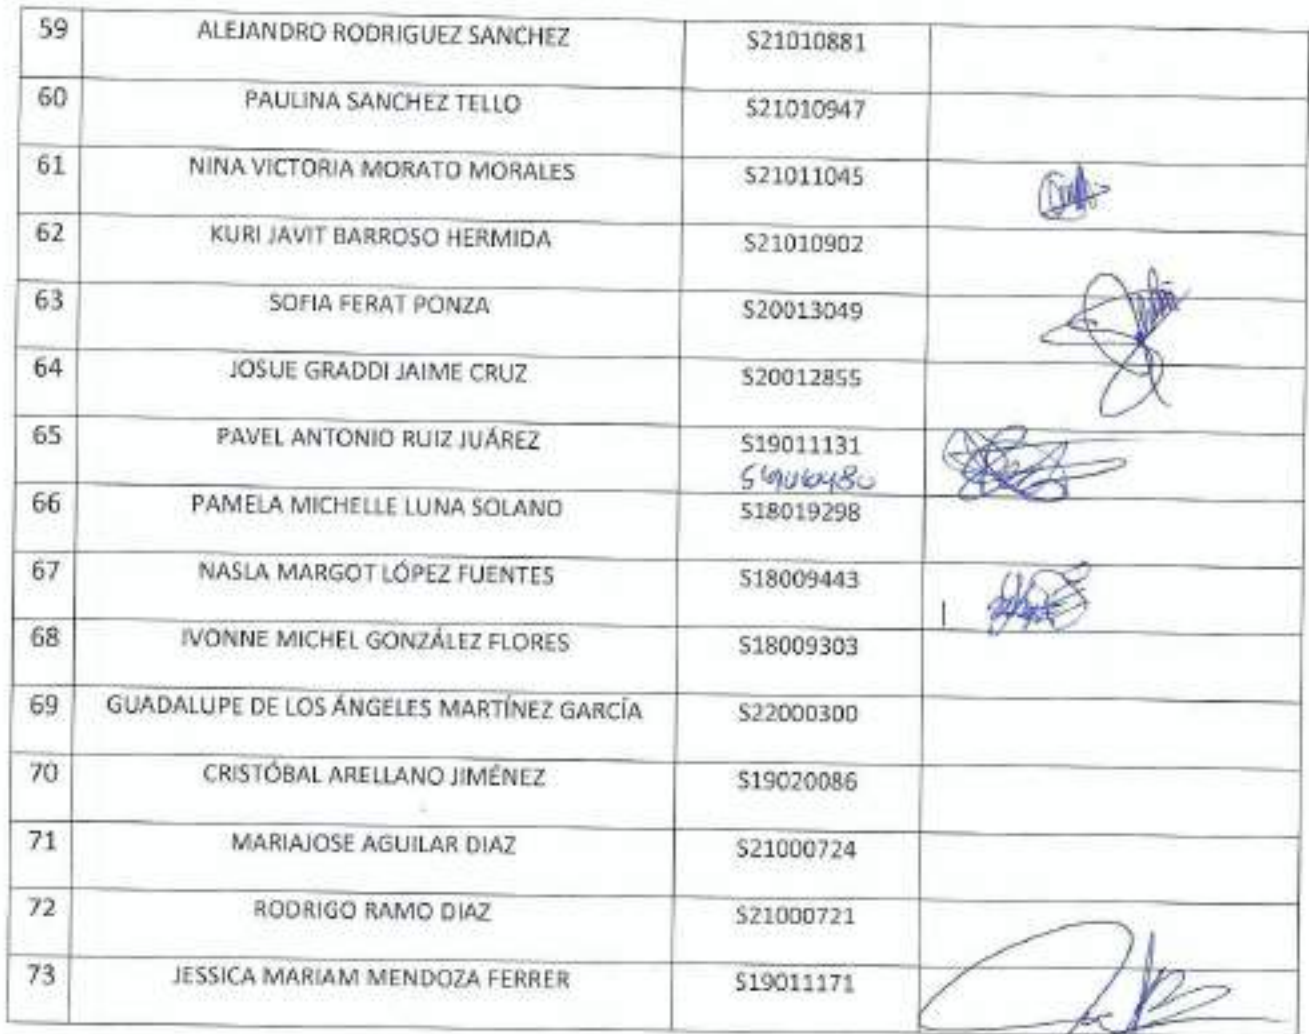 59 ALEJANDRO RODRIGUEZ SANCHEZ S21010881
60 PAULINA SANCHEZ TELLO S21010947
61 NINA VICTORIA MORATO MORALES S21011045
62 KURI JAVIT BARROSO HERMIDA S21010902
63 SOFIA FERAT PONZA S20013049
64 JOSUE GRADDI JAIME CRUZ S20012855
65 PAVEL ANTONIO RUIZ JUÁREZ S19011131
66 PAMELA MICHELLE LUNA SOLANO S18019298
67 NASLA MARGOT LÓPEZ FUENTES S18009443
68 IVONNE MICHEL GONZÁLEZ FLORES S18009303
69 GUADALUPE DE LOS ÁNGELES MARTÍNEZ GARCÍA S22000300
70 CRISTÓBAL ARELLANO JIMÉNEZ S19020086
71 MARIAJOSE AGUILAR DIAZ S21000724
72 RODRIGO RAMO DIAZ S21000721
73 JESSICA MARIAM MENDOZA FERRER S19011171